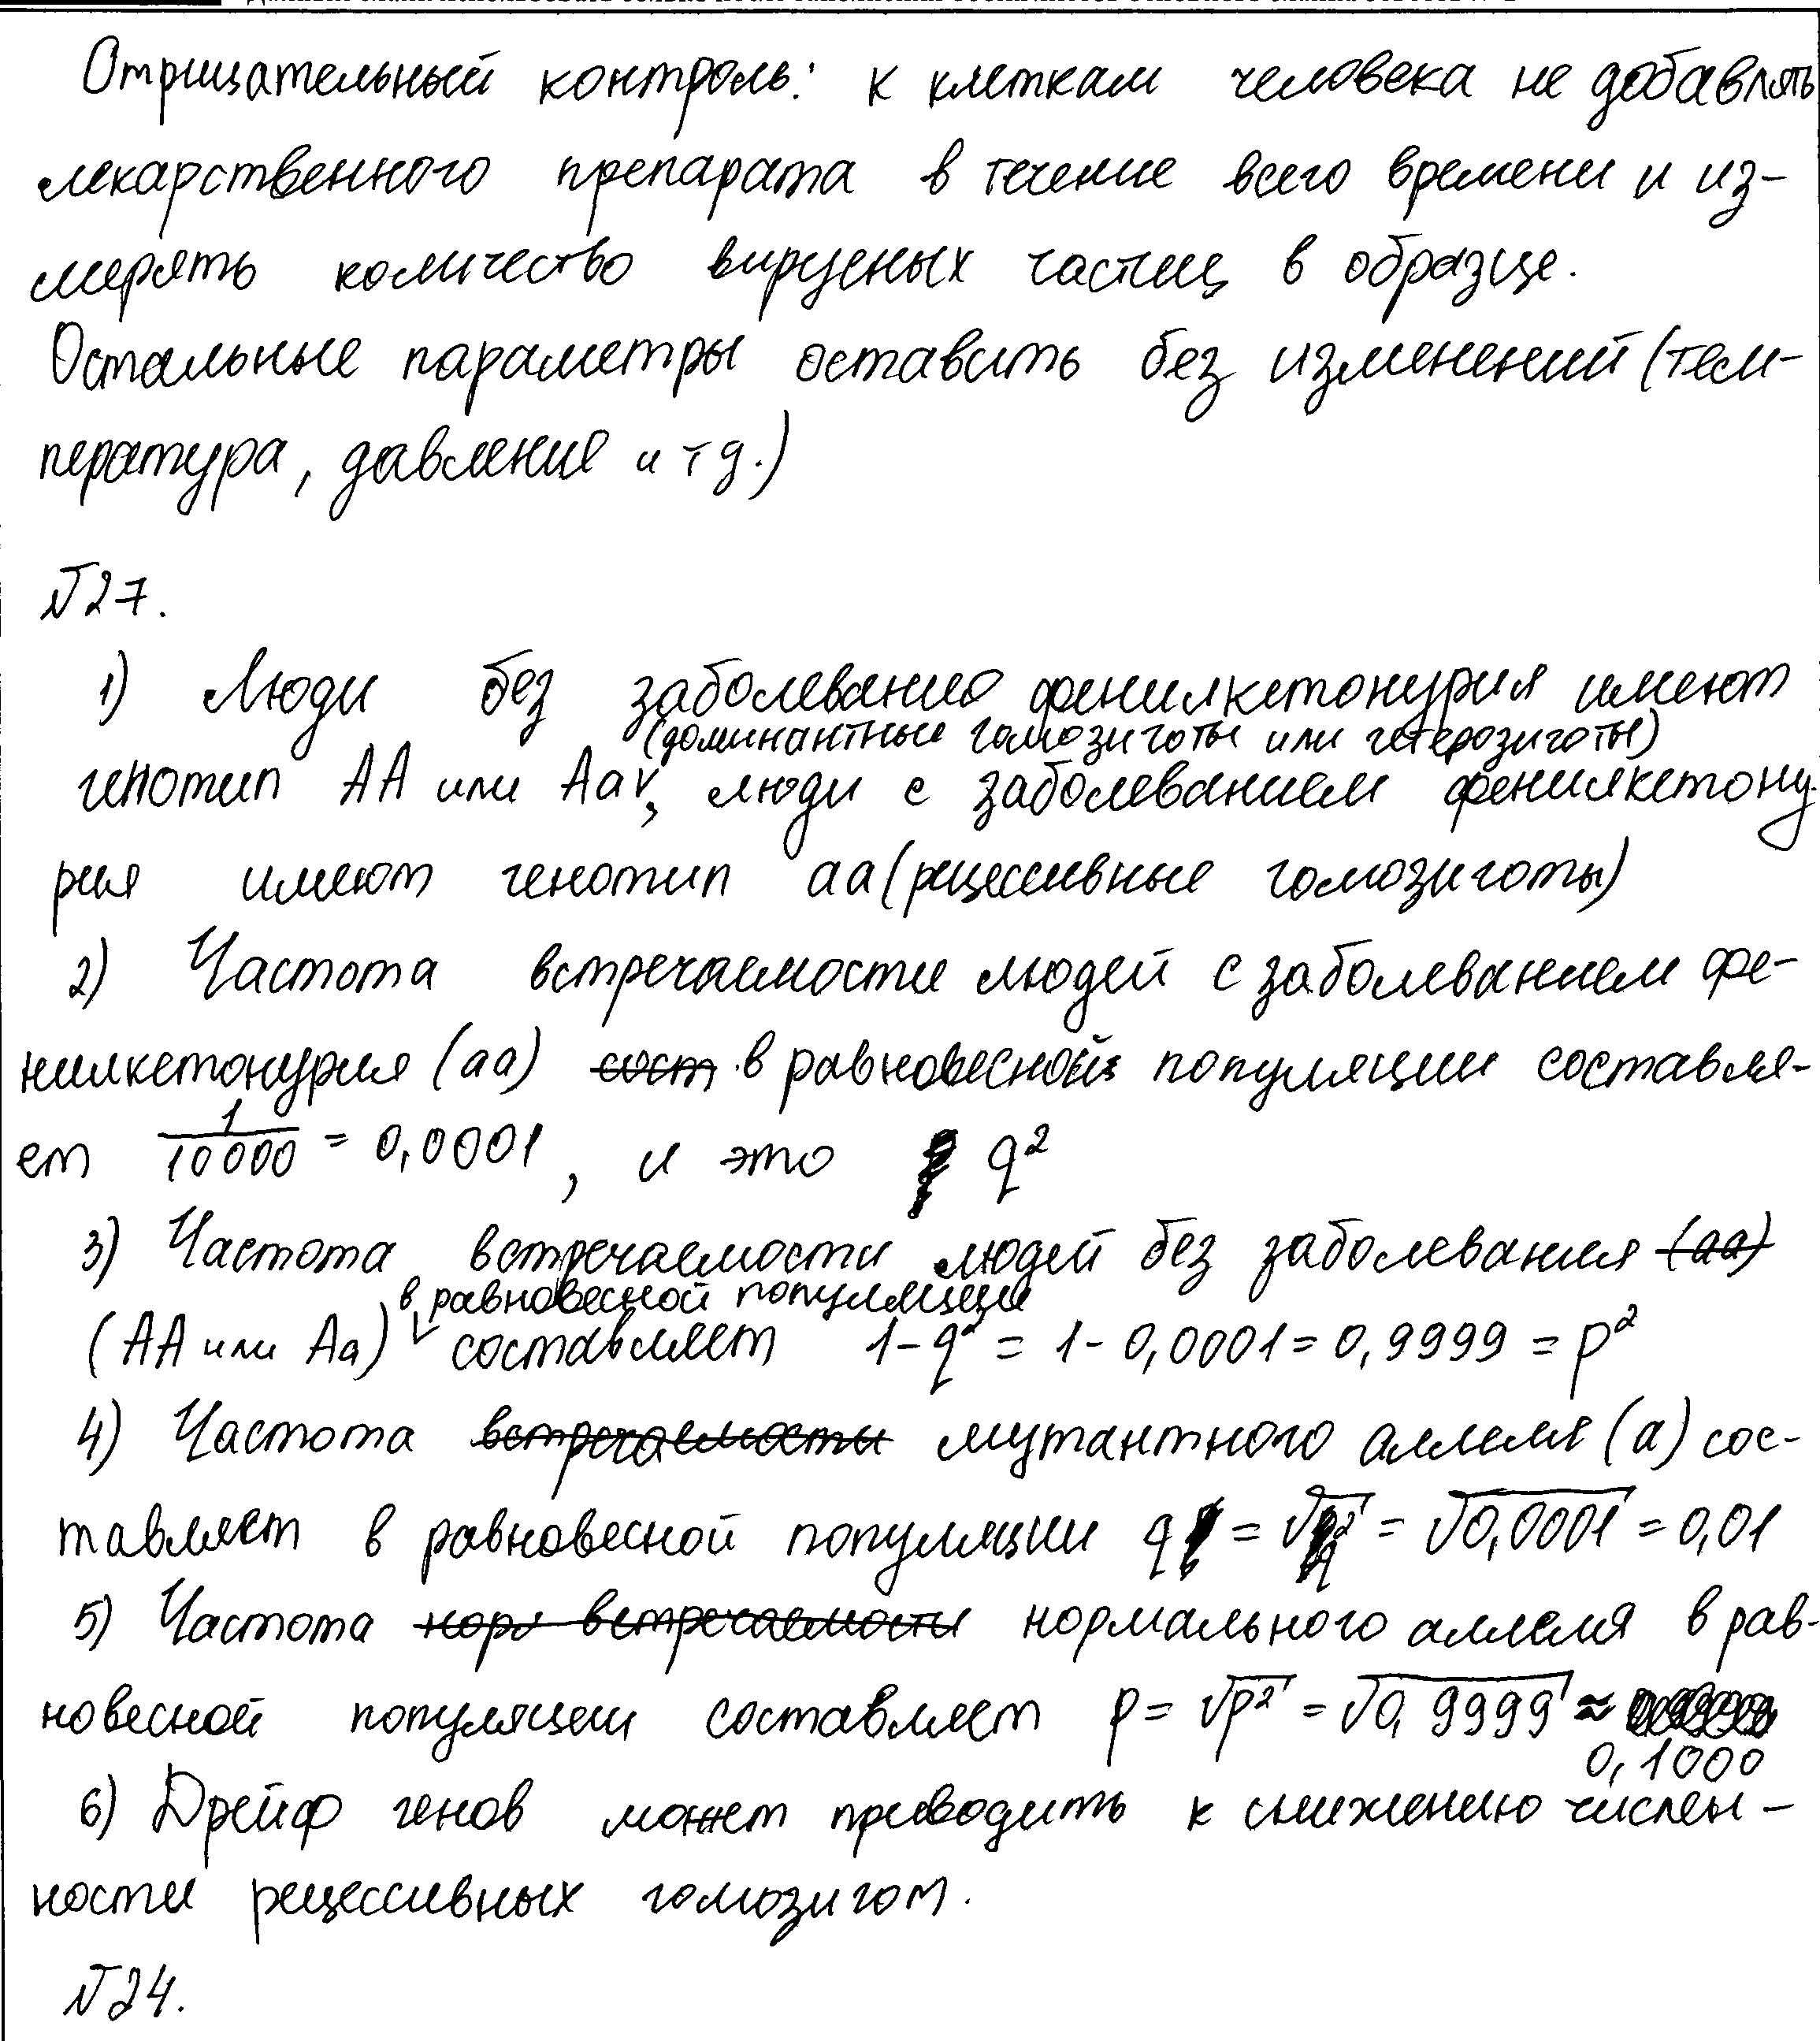 Отрицательный контроль: к клеткам человека не добавлять
лекарственного препарата в течение всего времени и из-
мерять количество вирусных частиц в образце.
Остальные параметры оставить без изменений (тем-
пература, давление и т д.)
№27.
1) Люди без заболевания фенилкетонурия имеют
(доминантные гомозиготы или гетерозиготы)
генотип АА или Аа∨, люди с заболеванием фенилкетону-
рия имеют генотип аа (рецессивные гомозиготы)
2) Частота встречаемости людей с заболеванием фе-
нилкетонурия (аа) сост в равновесной популяции составля-
ет 1/10000 = 0,0001, и это q²
3) Частота встречаемости людей без заболевания (аа)
в равновесной популяции
(АА или Аа) ∨ составляет 1-q² = 1-0,0001=0,9999 = p²
4) Частота встречаемости мутантного аллеля (а) сос-
тавляет в равновесной популяции q = √q² = √0,0001 = 0,01
5) Частота норм встречаемости нормального аллеля в рав-
новесной популяции составляет p = √p² = √0,9999 ≈
0,1000
6) Дрейф генов может приводить к снижению числен-
ности рецессивных гомозигот.
№24.